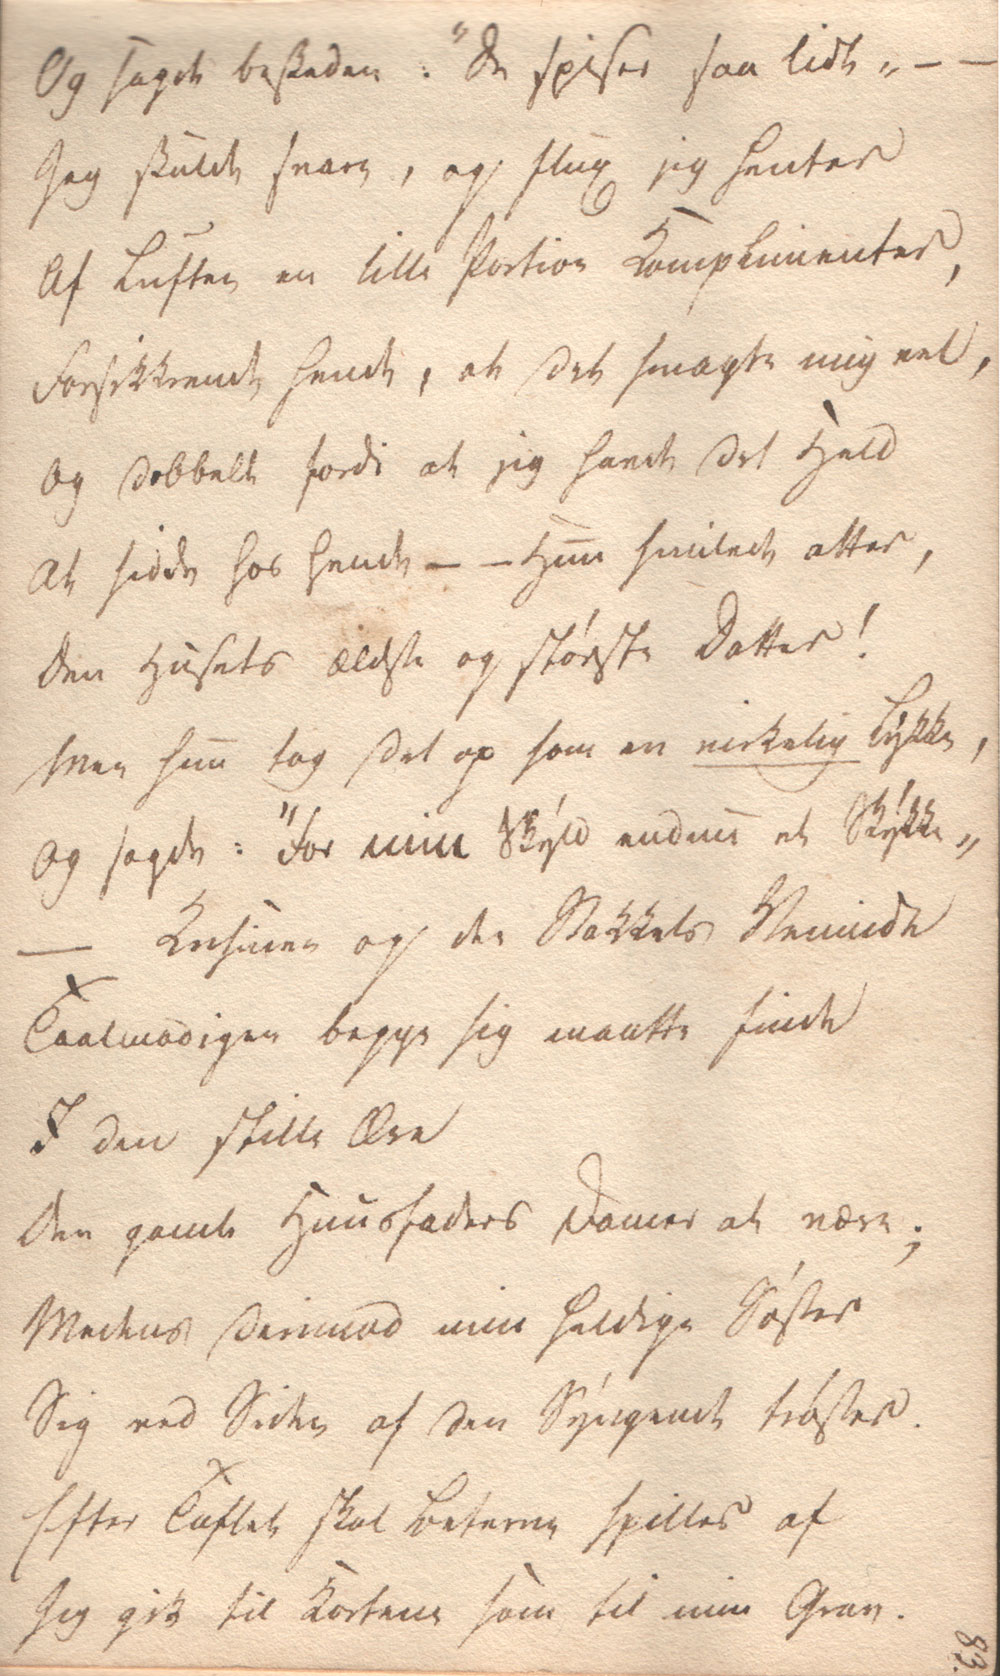 Og sagde beskeden: "De spiser saa lidt" – –
Jeg skulde svare, og flux jeg henter
Af Luften en lille Portion Komplimenter,
Forsikkrende hende, at det smagte mig vel,
Og dobbelt fordi at jeg havde det Held
At sidde hos hende – – Hun smilede atter,
Den Husets ældste og største Datter!
Men hun tog det op som en virkelig Lykke,
Og sagde: "For min Skyld endnu et Stykke"
– Kusinen og den Stakkels Veninde
Taalmodigen begge sig maatte finde
I den stille Ære
Den gamle Huusfaders Damer at være;
Medens derimod min heldige Søster
Sig ved Siden af den Syngende trøster.
Efter Taflet skal Beterne spilles af
Jeg gik til Kortene som til min Grav.
83.